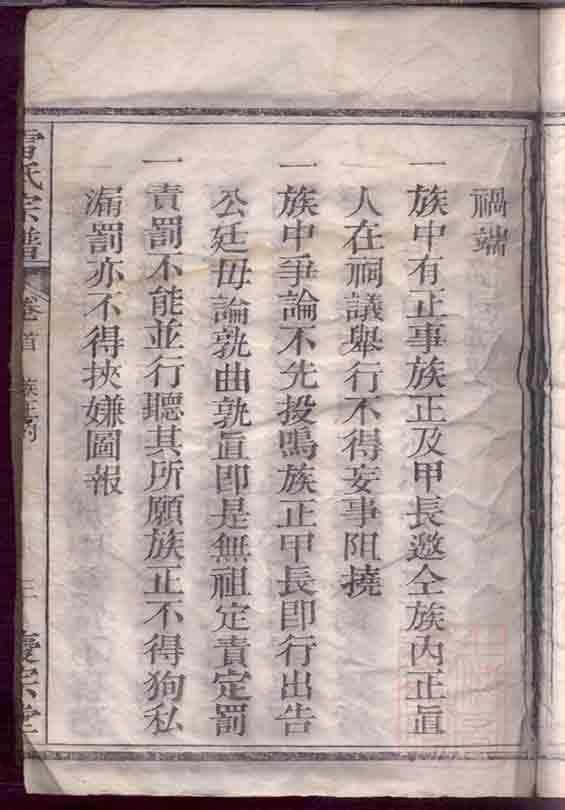 禍端
一族中有正事族正及甲長邀仝族內正眞
人在祠議舉行不得妄事阻撓
一族中爭論不先投鳴族正甲長即行出告
公廷毋論孰曲孰眞即是無祖定責定罰
一責罰不能並行聽其所願族正不得狥私
漏罰亦不得挾嫌圖報
氏宗譜 卷首 族正約 三 慶宗堂